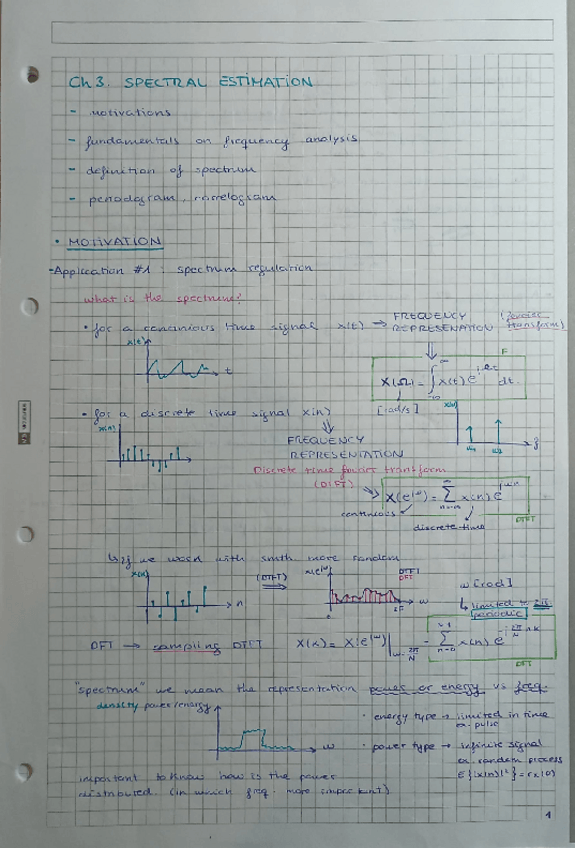 Ch 3. SPECTRAL ESTIMATION
- motivations
- fundamentals on frequency analysis
- definition of spectrum
- periodogram, correlogram
• MOTIVATION
- Application #1 : spectrum regulation
what is the spectrum?
• for a continuous time signal x(t) → FREQUENCY REPRESENATION (fourier transform)
x(t)
t
F
X(Ω) = ∫ x(t) e^jΩt dt
[rad/s]
• for a discrete time signal x(n)
x(n)
FREQUENCY
REPRESENTATION
f
Discrete time fourier transform
(DTFT)
X(e^jω) = Σ x(n) e^jωn
continuous
discrete-time
DTFT
↳ if we work with smth more random
x(n)
n
(DTFT)
DTFT
DFT
ω
2π
ω [rad]
↳ limited to 2π
periodic
DFT → sampling DTFT X(k) = X(e^jω)| = Σ x(n) e^j 2π/N nk
DFT
"spectrum" we mean the representation power or energy vs freq.
density power/energy
ω
• energy type → limited in time
a pulse
• power type → infinite signal
a random process
E{|x(n)|²} = rx(0)
important to know how is the power
distributed. (in which freq. more important)
1